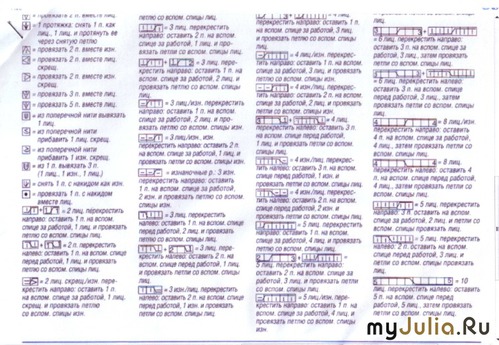 = 1 протяжка: снять 1 п. как
лиц., 1 лиц. и протянуть ее
через снятую петлю
= провязать 2 п. вместе изн.
= провязать 2 п. вместе изн.
скрещ.
= провязать 3 п. вместе лиц.
= провязать 5 п. вместе лиц.
= из поперечной нити вывязать
1 лиц.
= из поперечной нити
прибавить 1 лиц. скрещ.
= из поперечной нити
прибавить 1 изн. скрещ.
= из 1 п. вывязать 3 п.
(1 лиц., 1 изн., 1 лиц.)
= снять 1 п. с накидом как изн.
= провязать 1 п. с накидом
вместе лиц.
= 2 лиц., перекрестить
направо: оставить 1 п. на вспом.
спице за работой, 1 лиц. и провязать
петлю со вспом. спицы лиц.
= 2 п., перекрестить
налево: оставить 1 п. на вспом. спице
перед работой, 1 лиц. и провязать
петлю со вспом. спицы лиц.
= 2 лиц. скрещ./изн., пере-
крестить направо: оставить 1 п.
на вспом. спице за работой, 1 лиц.
скрещ. и провязать петлю со
вспом. спицы изн.
петлю со вспом. спицы лиц.
= 3 лиц., перекрестить
направо: оставить 2 п. на вспом.
спице за работой, 1 лиц. и про-
вязать петли со вспом. спицы лиц.
= 3 лиц., пере-
крестить направо: оставить 1 п. на
вспом. спице за работой, 2 лиц. и
провязать петлю со вспом. спицы
лиц.
= 3 лиц./изн., перекрестить
направо: оставить 1 п. на вспом.
спице за работой, 2 лиц. и про-
вязать петлю со вспом. спицы изн.
= 3 лиц./изн., изн.
перекрестить направо: оставить 2 п.
на вспом. спице за работой, 1 лиц. и
провязать петли со вспом. спицы изн.
= изнаночные р.: 3 изн.
перекрестить направо: оставить 1 п.
на вспом. спице за работой,
2 изн. и провязать петлю со вспом.
спицы изн.
= 3 лиц., перекрестить
налево: оставить 1 п. на вспом. спице
перед работой, 2 лиц. и провязать
петлю со вспом. спицы лиц.
= 3 лиц., пере-
крестить налево: оставить 2 п. на
вспом. спице перед работой, 1 лиц.
и провязать петли со вспом. спицы
лиц.
= 3 изн./лиц., перекрестить
налево: оставить 2 п. на вспом. спице
перед работой, 1 изн. и провязать
петли со вспом. спицы лиц.
направо: оставить 1 п. на вспом.
спице за работой, 3 лиц. и провязать
петлю со вспом. спицы лиц.
= 4 лиц./изн.,
перекрестить направо: оставить 1 п.
на вспом. спице за работой, 3 лиц. и
провязать петлю со вспом. спицы
изн.
= 4 лиц./изн.,
перекрестить направо: оставить 2 п.
на вспом. спице за работой, 2 лиц. и
провязать петли со вспом. спицы изн.
= 4 лиц.,
перекрестить налево: оставить 3 п.
на вспом. спице перед работой,
1 лиц. и провязать петли со вспом.
спицы лиц.
= 4 изн./лиц., перекрес-
тить налево: оставить 3 п. на вспом.
спице перед работой, 1 изн. и
провязать петли со вспом. спицы
лиц.
= 4 изн./лиц., перекрестить
налево: оставить 2 п. на вспом.
спице перед работой, 2 изн. и
провязать петли со вспом. спицы
лиц.
5 лиц., перекрестить направо:
оставить 2 п. на вспом. спице за
работой, 3 лиц. и провязать петли со
вспом. спицы лиц.
= 5 лиц./изн., пере-
крестить направо: оставить 1 п. на
вспом. спице за работой, 4 лиц. и
провязать петлю со вспом. спицы
изн.
= 6 лиц., перекрестить направо:
оставить 3 п. на вспом. спице за
работой, 3 лиц., затем провязать
петли со вспом. спицы лиц.
= 6 лиц., перекрестить налево:
оставить 3 п. на вспом. спице перед
работой, 3 лиц., затем провязать
петли со вспом. спицы лиц.
= 8 лиц.,
перекрестить направо: оставить
4 п. на вспом. спице за работой,
4 лиц., затем провязать петли со
вспом. спицы лиц.
= 8 лиц.,
перекрестить налево: оставить
4 п. на вспом. спице перед работой,
4 лиц., затем провязать петли со
вспом. спицы лиц.
= 5 лиц.,
перекрестить направо: оставить
3 п. на вспом. спице за
работой, 2 лиц. и провязать петли
со вспом. спицы лиц.
= 5 лиц., перекрестить
налево: оставить 2 п. на вспом.
спице перед работой, 3 лиц. и про-
вязать петли со вспом. спицы лиц.
= 10
лиц., перекрестить налево: оставить
5 п. на вспом. спице перед
работой, 5 лиц., затем провязать
петли со вспом. спицы лиц.
myJulia.Ru